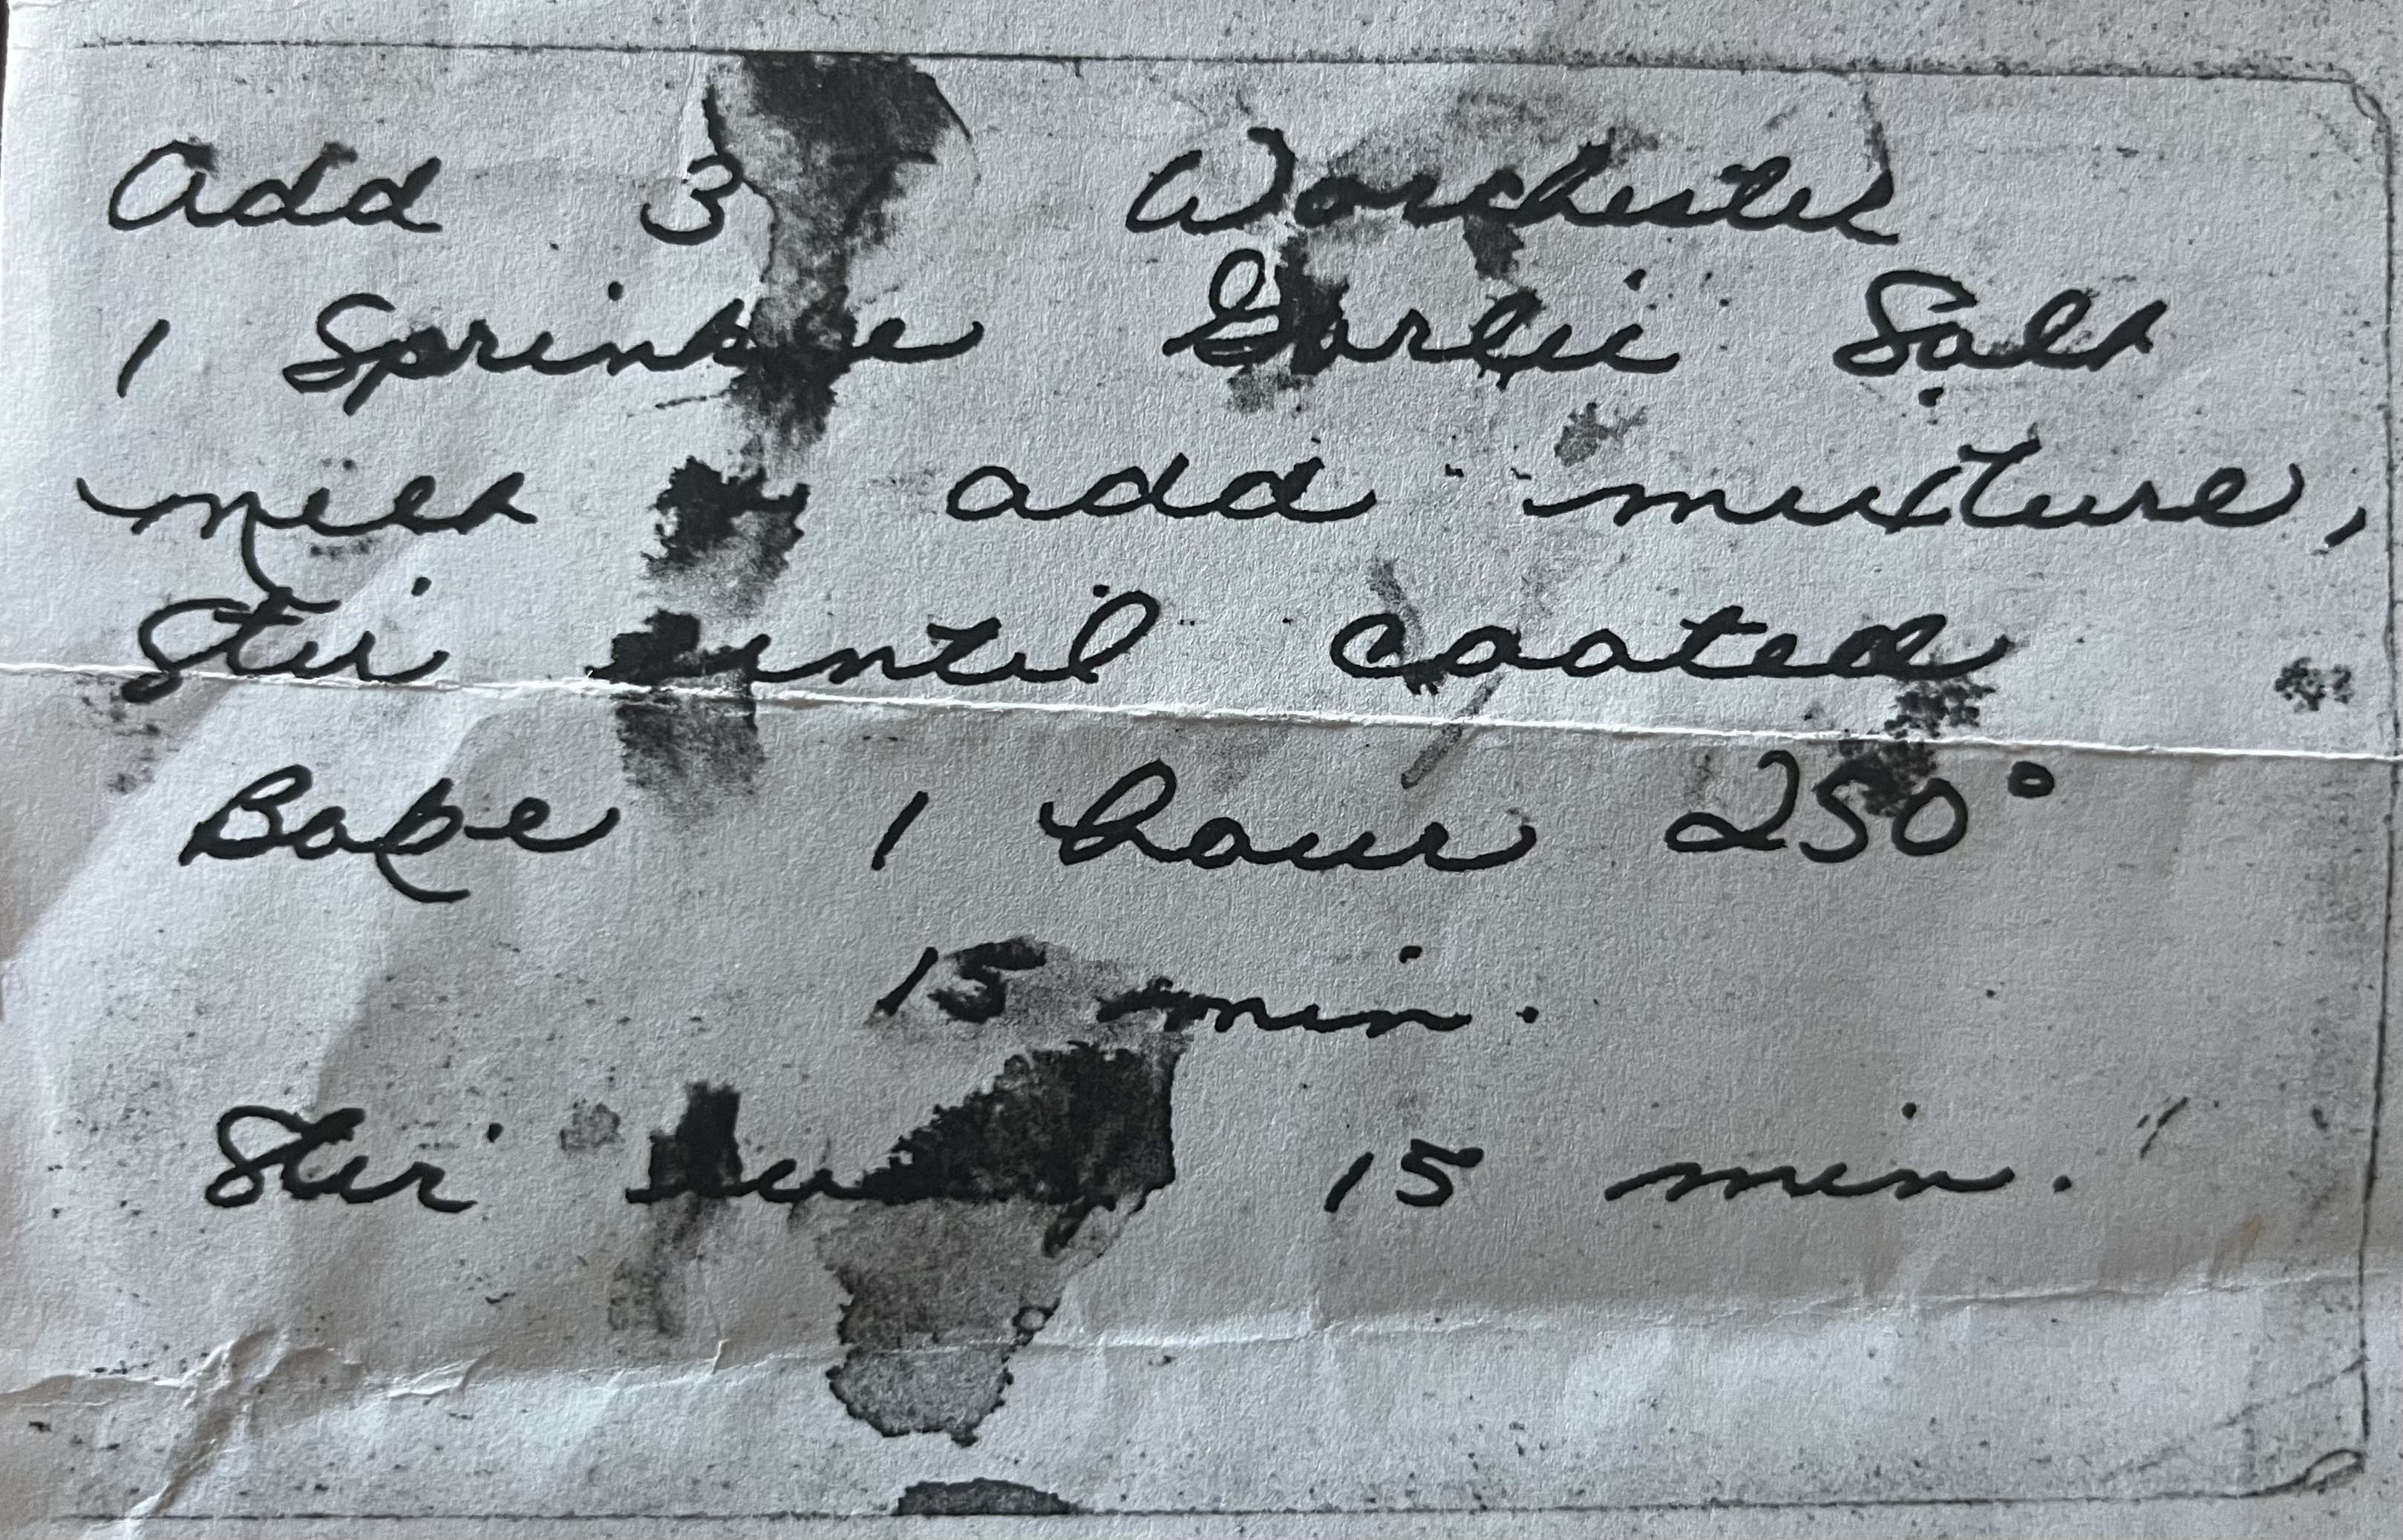 Add 3 Worchester
1 Sprinkle Garlic Salt
melt add mixture,
Stir until coated
Bake 1 hour 250°
15 min.
Stir 15 min.